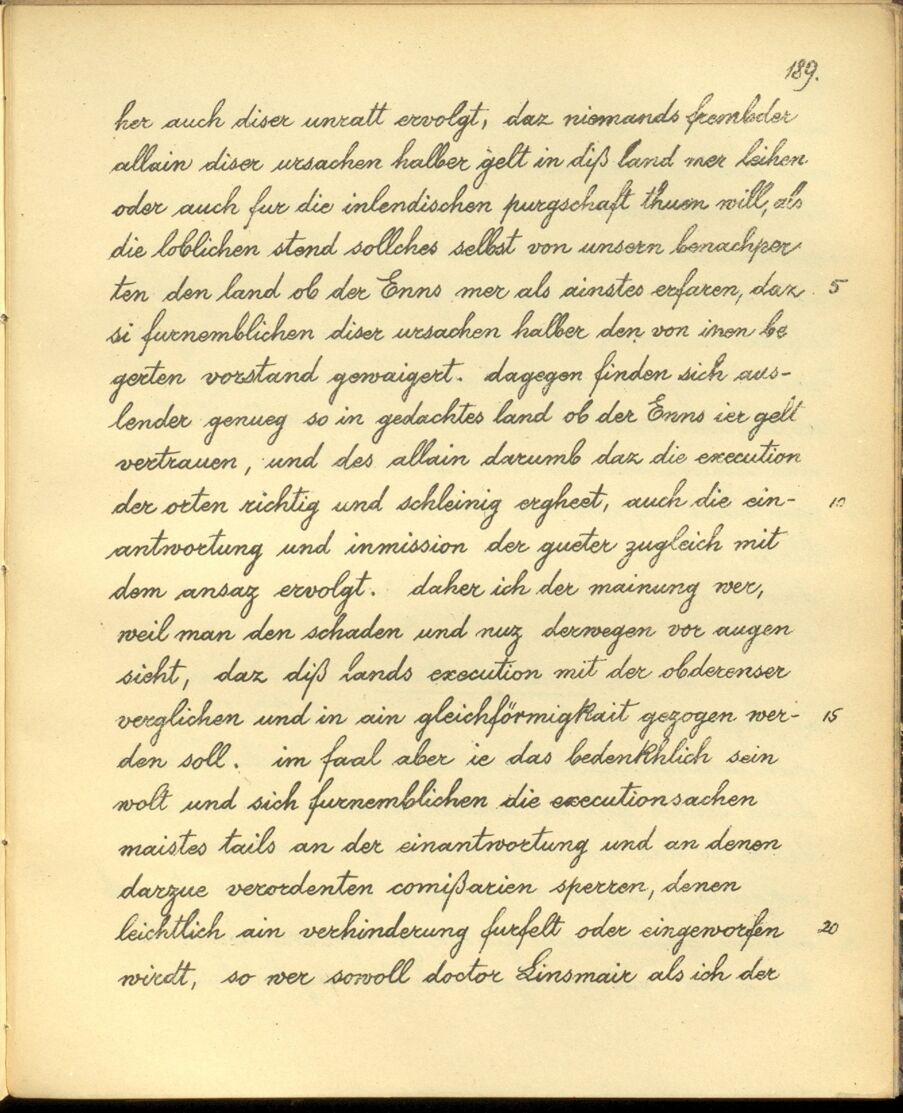 189.
her auch diser unratt ervolgt, daz niemands frembder
allain diser ursachen halber gelt in diß land mer leihen
oder auch fur die inlendischen purgschaft thuen will, als
die loblichen stend sollches selbst von unsern benachper-
ten den land ob der Enns mer als ainstes erfaren, daz 5
si furnemblichen diser ursachen halber den von inen be
gerten vorstand gewaigert. dagegen finden sich aus-
lender genueg so in gedachtes land ob der Enns ier gelt
vertrauen, und des allain darumb daz die execution
der orten richtig und schleinig ergheet, auch die ein- 10
antwortung und inmission der gueter zugleich mit
dem ansaz ervolgt. daher ich der mainung wer,
weil man den schaden und nuz derwegen vor augen
sieht, daz diß lands execution mit der obderenser
verglichen und in ain gleichförmigkait gezogen wer- 15
den soll. im faal aber ie das bedenkhlich sein
wolt und sich furnemblichen die executionsachen
maistes tails an der einantwortung und an denen
darzue verordenten comißarien sperren, denen
leichtlich ain verhinderung furfelt oder eingeworfen 20
wirdt, so wer sowoll doctor Linsmair als ich der